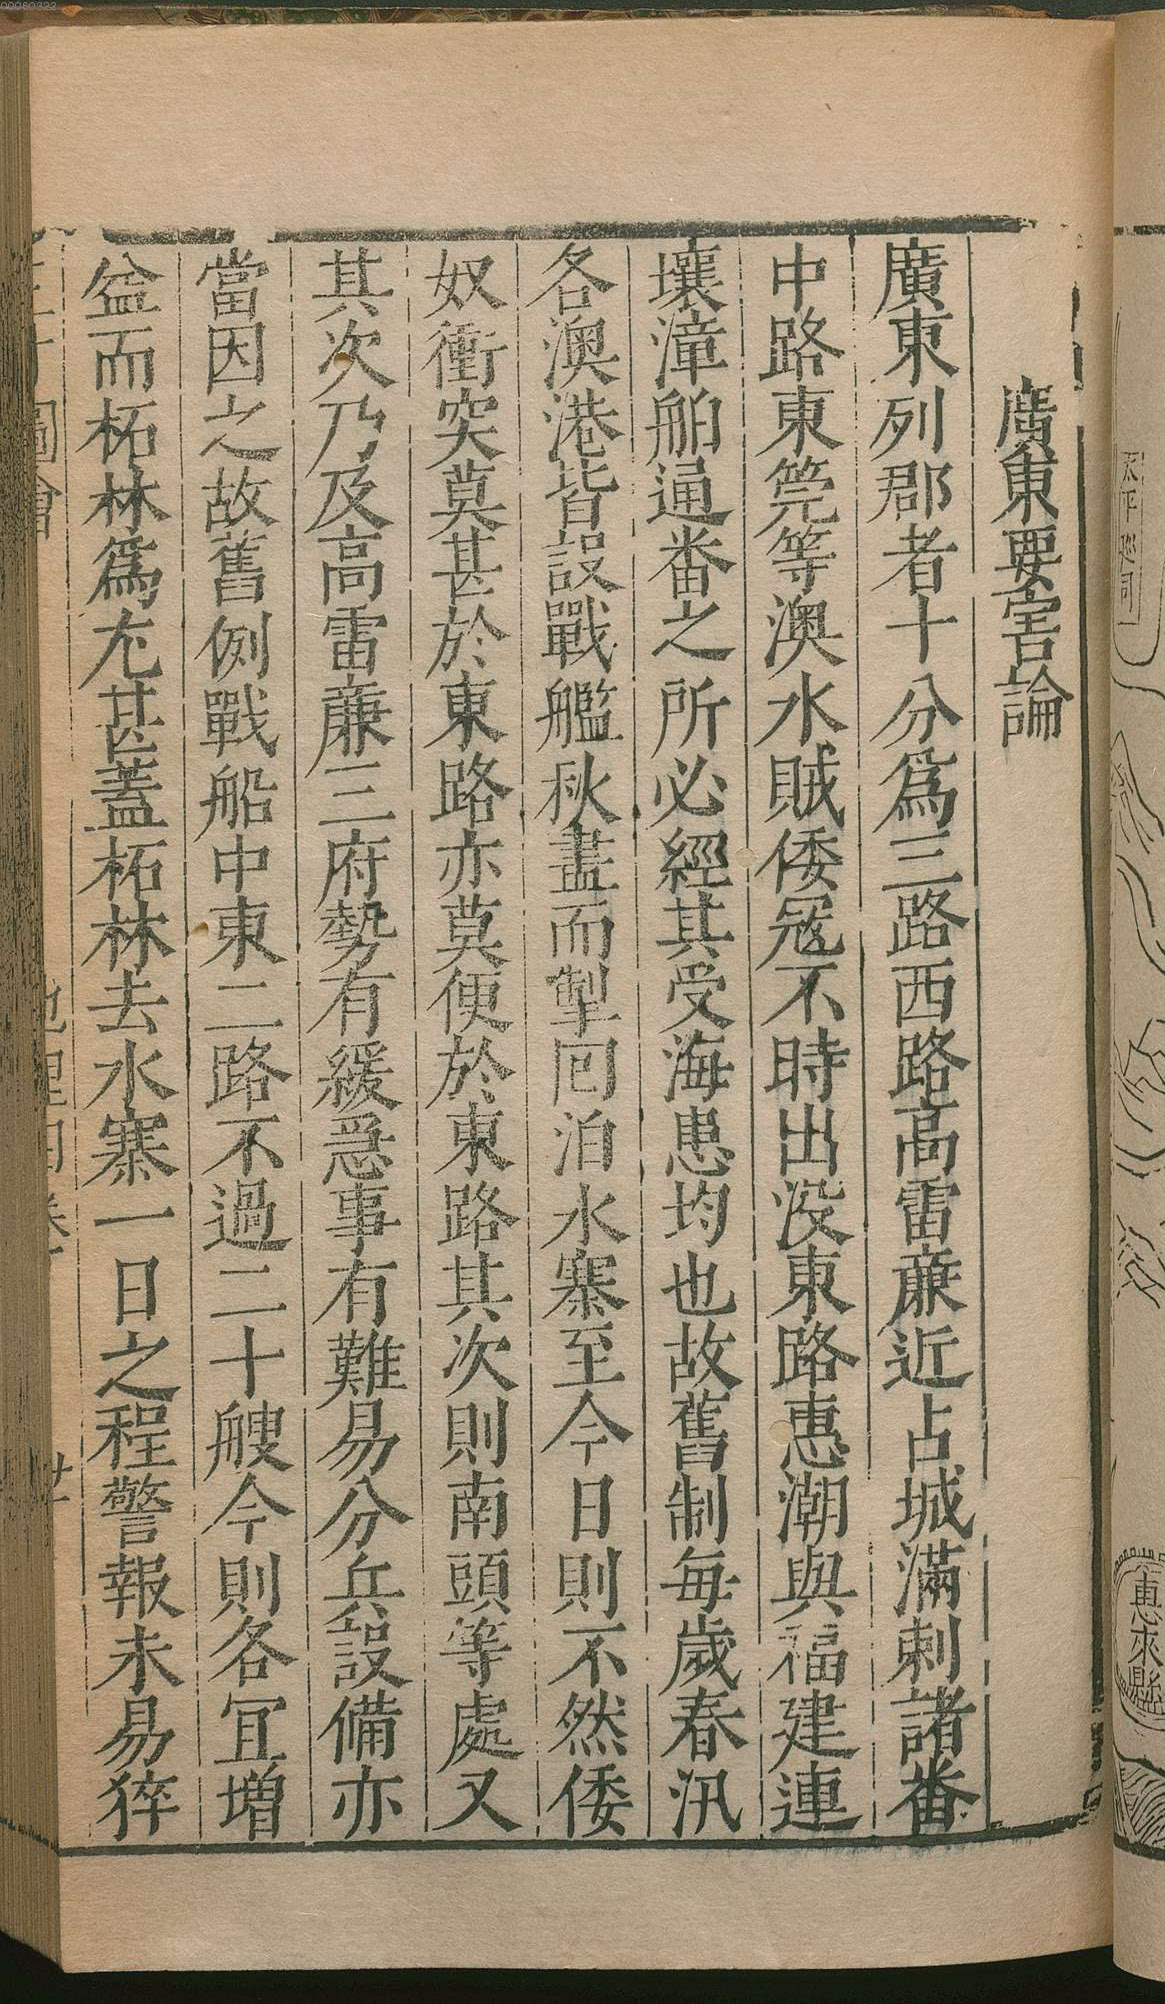 廣東要害論
廣東列郡者十分爲三路西路高雷廉近占城滿剌諸番
中路東筦等澳水賊倭寇不時出没東路惠潮與福建連
壤漳舶通番之所必經其受海患均也故舊制每歲春汛
各澳港皆設戰艦秋盡而掣回泊水寨至今日則不然倭
奴衝突莫甚於東路亦莫便於東路其次則南頭等處又
其次乃及高雷廉三府勢有緩急事有難易分兵設備亦
當因之故舊例戰船中東二路不過二十艘今則各宜增
益而柘林爲尤甚蓋柘林去水寨一日之程警報未易猝
圖會
地理四卷
廿
太平巡司
惠來縣
00060322